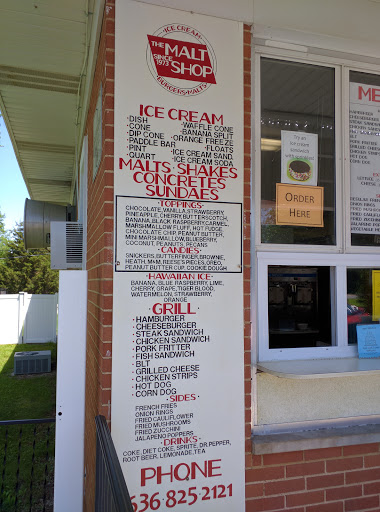 ICE CREAM
THE MALT
SINCE 1973
SHOP
BURGERS • MALTS
ICE CREAM
• DISH
• WAFFLE CONE
• CONE
• BANANA SPLIT
• DIP CONE
• ORANGE FREEZE
• PADDLE BAR
• FLOATS
• PINT
• ICE CREAM SAND.
• QUART
• ICE CREAM SODA
MALTS•SHAKES
CONCRETES
SUNDAES
•TOPPINGS•
CHOCOLATE, VANILLA, STRAWBERRY,
PINEAPPLE, CHERRY, BUTTERSCOTCH,
BANANA, BLACK RASPBERRY, CARMEL
MARSHMALLOW FLUFF, HOT FUDGE,
CHOCOLATE CHIP, PEANUT BUTTER
MINI MARSHMALLOW, BLUEBERRY,
COCONUT, PEANUTS, PECANS
•CANDIES•
SNICKERS, BUTTERFINGER, BROWNIE,
HEATH, M&M, REESE'S PIECES, OREO,
PEANUT BUTTER CUP, COOKIE DOUGH
•HAWAIIAN ICE•
BANANA, BLUE RASPBERRY, LIME,
CHERRY, GRAPE, TIGER BLOOD,
WATERMELON, STRAWBERRY,
ORANGE
•GRILL•
• HAMBURGER
• CHEESEBURGER
• STEAK SANDWICH
• CHICKEN SANDWICH
• PORK FRITTER
• FISH SANDWICH
• BLT
• GRILLED CHEESE
• CHICKEN STRIPS
• HOT DOG
• CORN DOG
•SIDES•
FRENCH FRIES
ONION RINGS
FRIED CAULIFLOWER
FRIED MUSHROOMS
FRIED ZUCCHINI
JALAPENO POPPERS
•DRINKS•
COKE, DIET COKE, SPRITE, DR. PEPPER,
ROOT BEER, LEMONADE, TEA
PHONE
636-825-2121
ice cream
sandwich
ORDER
HERE
ME
HAMBURGER